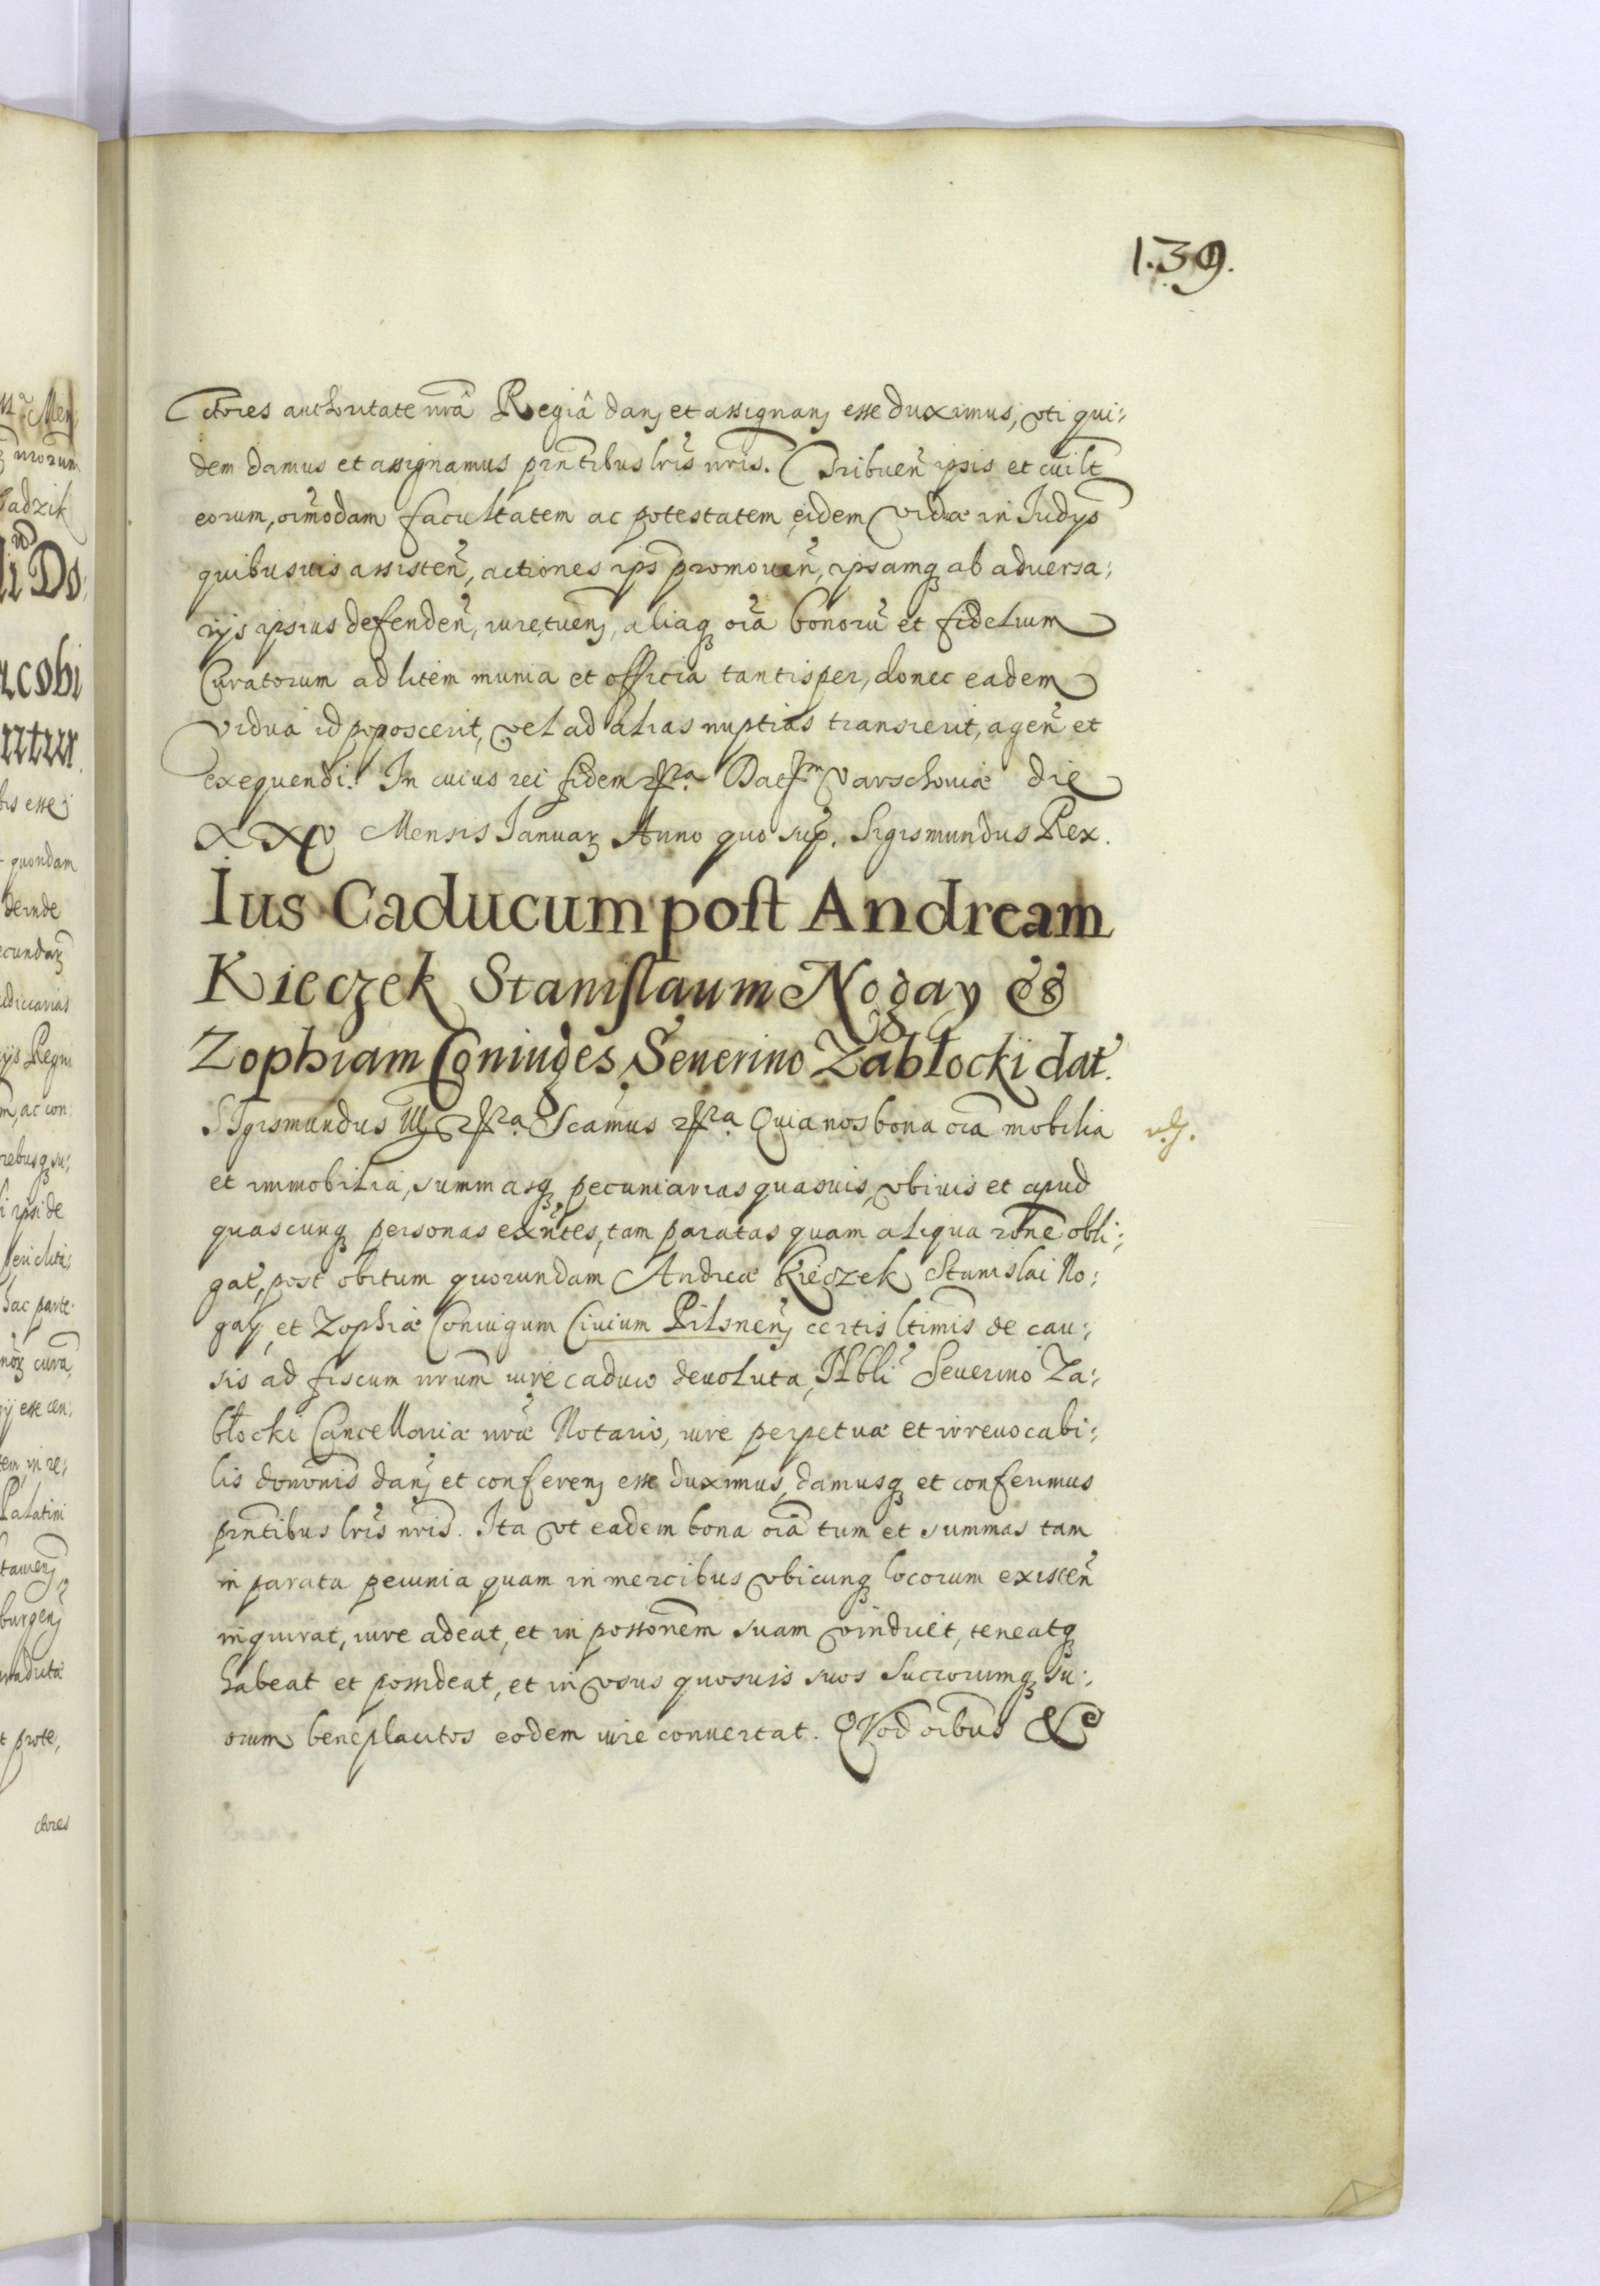 139.
ctores authoritate nrâ Regiâ dan̄ et assignan̄ esse duximus, vti qui:
dem damus et assignamus pn̄tibus lr̄is nr̄is. Tribuen̄ ipsis et cuilt
eorum, oīmodam facultatem ac potestatem, eidem viduæ in Iudys
quibusuis assisten̄, actiones ips promouen̄, ipsamq ab aduersa:
rijs ipsius defenden̄, iure tuen̄, aliaq oīa bonorū et fidelium
Curatorum ad litem munia et officia tantisper, donec eadem
vidua id poposcerit, vel ad alias nuptias transierit, agen̄ et
exequendi. In cuius rei fidem etc. Dat Varschouiæ die
XXV Mensis Ianuar Anno quo sup. Sigismundus Rex.
Ius Caducum post Andream
Kieczek Stanislaum Nogay &
Zophiam Coniuges Seuerino Zabłocki dat.
SIgismundus III etc. Scamus etc. Quia nos bona oīa mobilia
et immobilia, summasq pecuniarias quasuis, vbiuis et apud
quascunq personas exn̄tes, tam paratas quam aliqua rōne obli:
gat, post obitum quorundam Andreæ Kieczek Stanislai No:
gay, et Zophiæ Coniugum Ciuium Pilsnen̄ certis ltimis de cau:
sis ad fiscum nrum iure caduco deuoluta, Nbli Seuerino Za:
błocki Cancellariæ nræ Notario, iure perpetuæ et irreuocabi:
lis donōnis dan̄ et conferen̄ esse duximus, damusq et conferimus
pn̄tibus lr̄is nr̄is. Ita vt eadem bona oīa tum et summas tam
in parata pecunia quam in mercibus vbicunq locorum existen̄
inquirat, iure adeat, et in possonem suam vindicet, teneatq
habeat et possideat, et in vsus quosuis suos Succorumq su:
orum beneplacitos eodem iure conuertat. QVod oībus &c